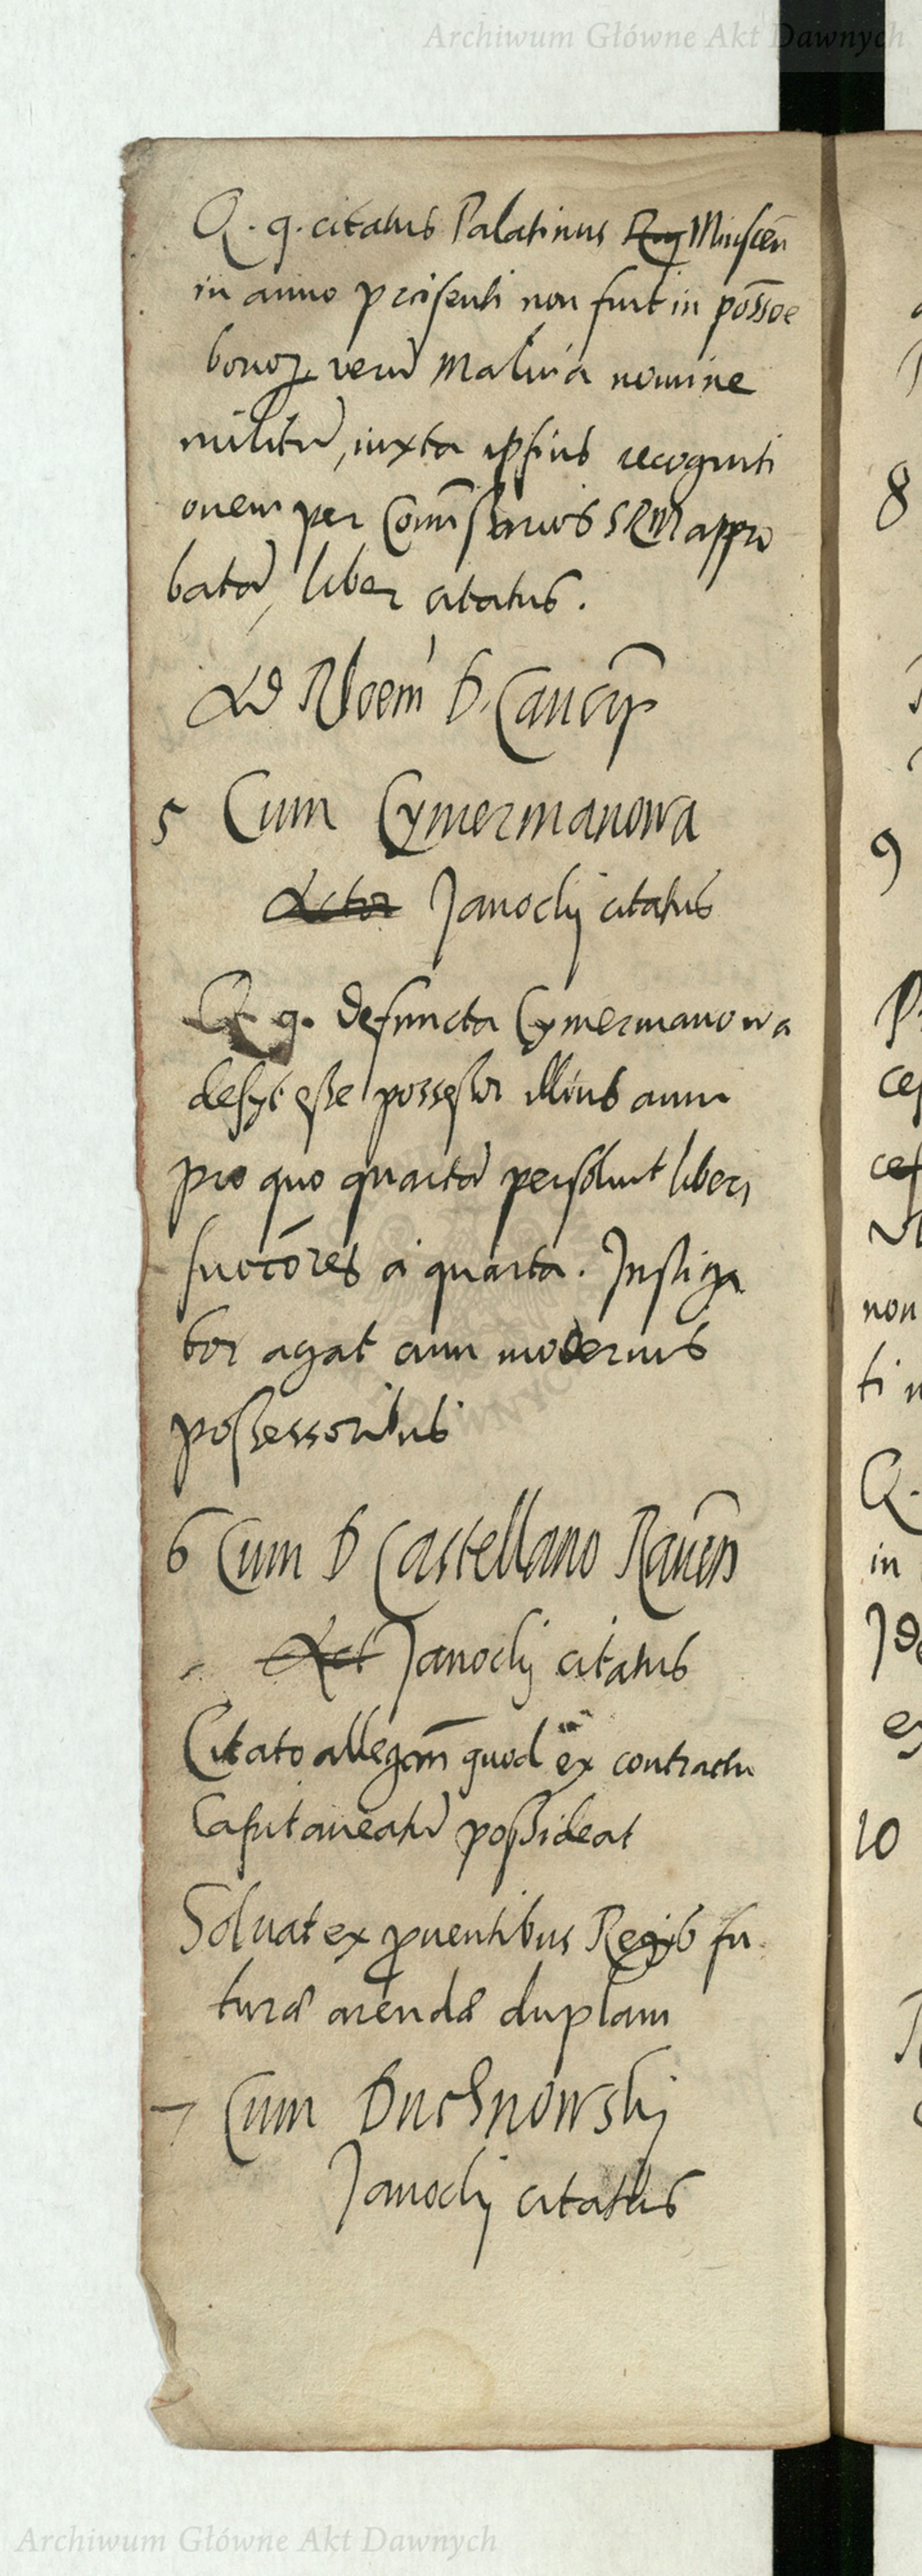 Archiwum Główne Akt Dawnych
Q. q. citatus Palatinus Reg Minscen̄
in anno præsenti non fuit in pos̄soe
bonoꝝ, verū nomine
militū, iuxta ipsius recogniti
onem per Com̄issarios SRM appro
batā, liber citatus.
Ad Rłoem D. Canc
5 Cum Cymermanowa
Actor Janocÿ citatus
Q q. defuncta Cymermanowa
desÿt esse possessor illius anni
pro quo quartā persoluit liberi
succōres à quarta. Instiga
tor agat cum modernis
possessoribus
6 Cum D Castellano Raven̄
Act Janocÿ citatus
Citato allegan̄ quod ex contractu
Capitaneatū possideat
Soluat ex ꝓuentibus Regijs fu
turā arendā duplam
7 Cum Duchnowskj
Janocÿ citatus
8
9
Q.
in
10
Archiwum Główne Akt Dawnych